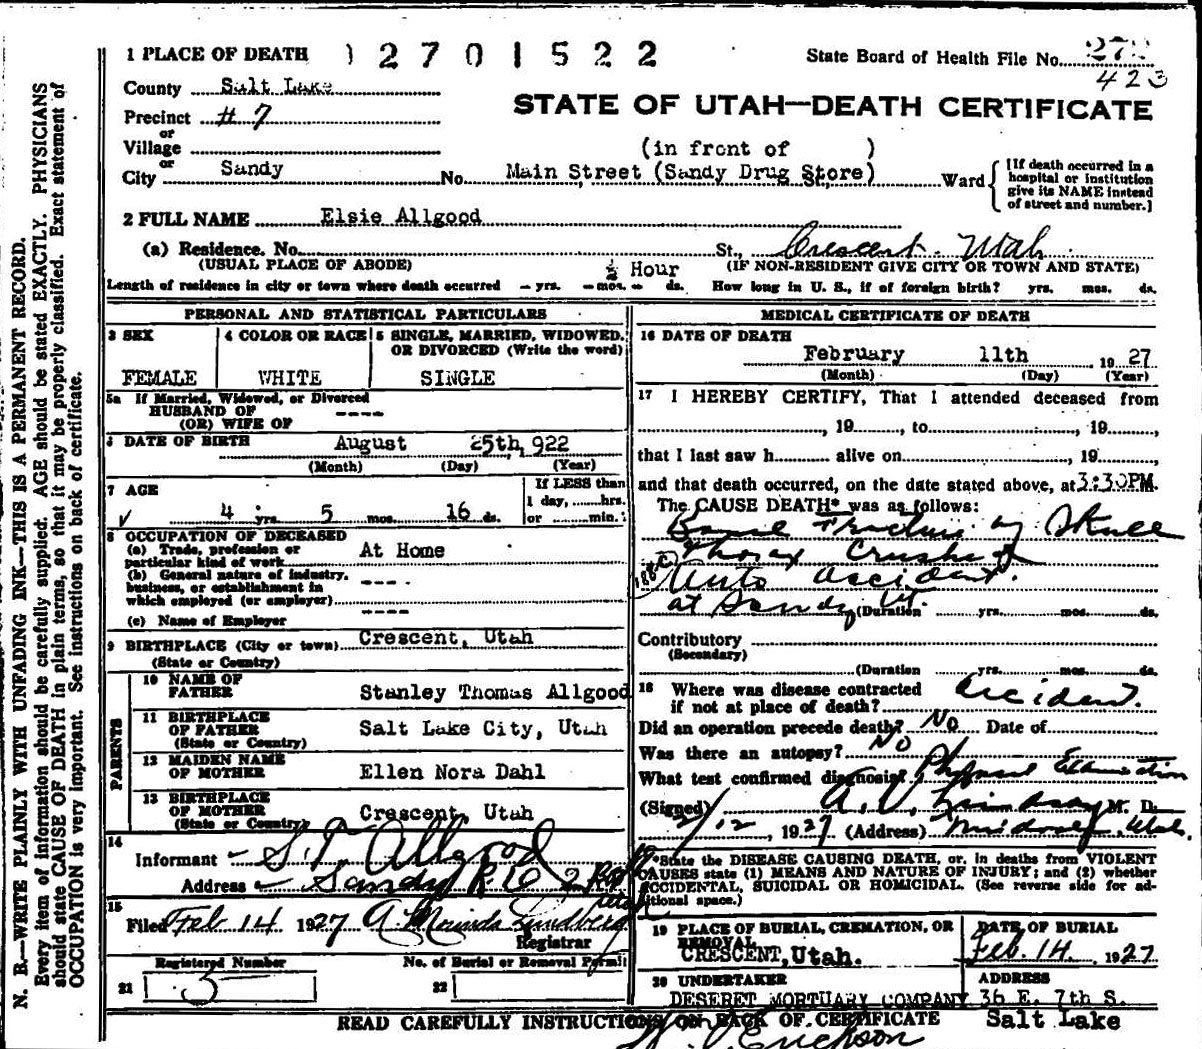 1 PLACE OF DEATH 2701522 State Board of Health File No. 272
423
County Salt Lake
STATE OF UTAH—DEATH CERTIFICATE
Precinct # 7
or
Village
(in front of )
or
City Sandy No. Main Street (Sandy Drug Store) Ward
[If death occurred in a hospital or institution give its NAME instead of street and number.]
2 FULL NAME Elsie Allgood
(a) Residence. No. St., Crescent Utah
(USUAL PLACE OF ABODE) ½ Hour (IF NON-RESIDENT GIVE CITY OR TOWN AND STATE)
Length of residence in city or town where death occurred – yrs. – mos. – ds. How long in U. S., if of foreign birth? yrs. mos. ds.
PERSONAL AND STATISTICAL PARTICULARS
3 SEX
FEMALE
4 COLOR OR RACE
WHITE
5 SINGLE, MARRIED, WIDOWED, OR DIVORCED (Write the word)
SINGLE
5a If Married, Widowed, or Divorced
HUSBAND OF ----
(OR) WIFE OF
DATE OF BIRTH August 25th, 922
(Month) (Day) (Year)
7 AGE
4 yrs. 5 mos. 16 ds.
If LESS than
1 day, hrs.
or min.
8 OCCUPATION OF DECEASED
(a) Trade, profession or
particular kind of work At Home
(b) General nature of industry,
business, or establishment in ----
which employed (or employer) ----
(c) Name of Employer
9 BIRTHPLACE (City or town) Crescent, Utah
(State or Country)
PARENTS
10 NAME OF
FATHER Stanley Thomas Allgood
11 BIRTHPLACE
OF FATHER Salt Lake City, Utah
(State or Country)
12 MAIDEN NAME
OF MOTHER Ellen Nora Dahl
13 BIRTHPLACE
OF MOTHER Crescent, Utah
(State or Country)
14
Informant S.T. Allgood
Address Sandy R D 2
15
Filed Feb 14 1927 A Morinda Lundberg
Registrar
Registered Number
21 5
No. of Burial or Removal Permit
22
MEDICAL CERTIFICATE OF DEATH
16 DATE OF DEATH
February 11th 1927
(Month) (Day) (Year)
17 I HEREBY CERTIFY, That I attended deceased from
, 19 , to , 19 ,
that I last saw h alive on , 19 ,
and that death occurred, on the date stated above, at 3:30PM.
The CAUSE DEATH* was as follows:
Fracture of Skull
Thorax Crushed
188c Auto accident.
at Sandy Ut (Duration yrs. mos. ds.
Contributory
(Secondary)
(Duration yrs. mos. ds.
18 Where was disease contracted
if not at place of death? Accident.
Did an operation precede death? No Date of
Was there an autopsy? No
What test confirmed diagnosis? Physical Examination
(Signed) A. V. Lindsay M. D.
2/12, 1927 (Address) Midvale, Utah.
*State the DISEASE CAUSING DEATH, or, in deaths from VIOLENT
CAUSES state (1) MEANS AND NATURE OF INJURY; and (2) whether
ACCIDENTAL, SUICIDAL OR HOMICIDAL. (See reverse side for ad-
ditional space.)
19 PLACE OF BURIAL, CREMATION, OR
REMOVAL
CRESCENT, Utah.
DATE OF BURIAL
Feb. 14. 1927
20 UNDERTAKER
DESERET MORTUARY COMPANY
ADDRESS
36 E. 7th S.
Salt Lake
READ CAREFULLY INSTRUCTIONS ON BACK OF CERTIFICATE
Erickson
N. B.—WRITE PLAINLY WITH UNFADING INK—THIS IS A PERMANENT RECORD.
Every item of information should be carefully supplied. AGE should be stated EXACTLY. PHYSICIANS
should state CAUSE OF DEATH in plain terms, so that it may be properly classified. Exact statement of
OCCUPATION is very important. See instructions on back of certificate.